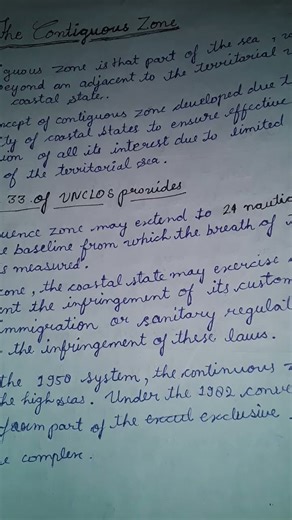 The Contiguous Zone
guous zone is that part of the sea,
beyond an adjacent to the territorial
coastal state.
ncept of contiguous zone developed due t
ty of coastal states to ensure effective
ion of all its interest due to limited
of the territorial sea.
33 of UNCLOS provides
quence zone may extend to 24 nautic
e baseline from which the breath of
s measured.
one, the coastal state may exercise
ent the infringement of its custom
immigration or sanitary regulat
the infringement of these laws.
the 1958 system, the continuous
the high seas. Under the 1982 conve
form part of the excul exclusive
e complex.